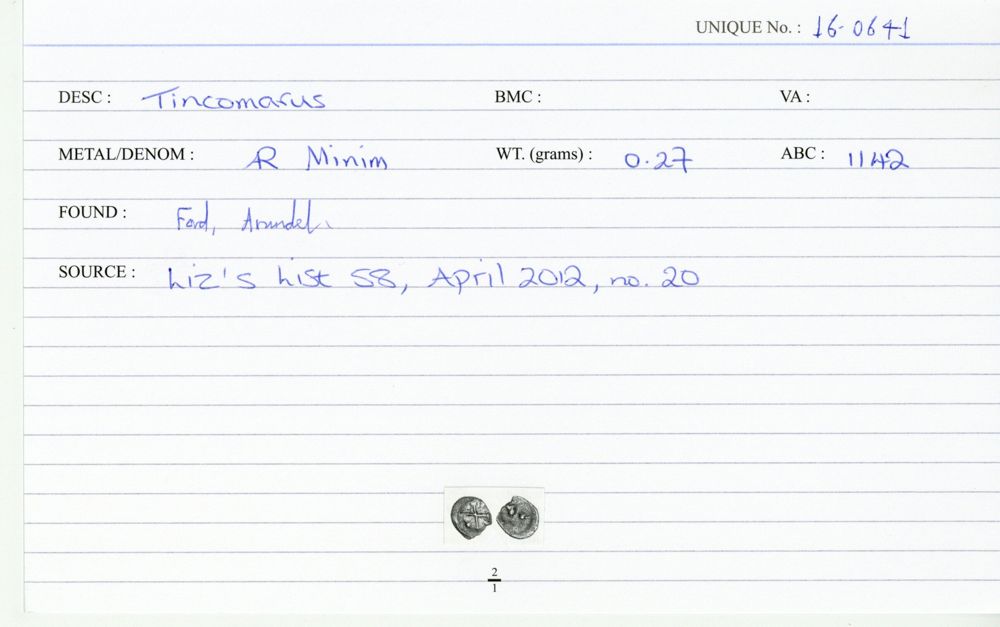 UNIQUE No. : 16-0641
DESC : Tincomarus BMC : VA :
METAL/DENOM : AR Minim WT. (grams) : 0.27 ABC : 1142
FOUND : Ford, Arundel.
SOURCE : Liz's List 58, April 2012, no. 20
2
1